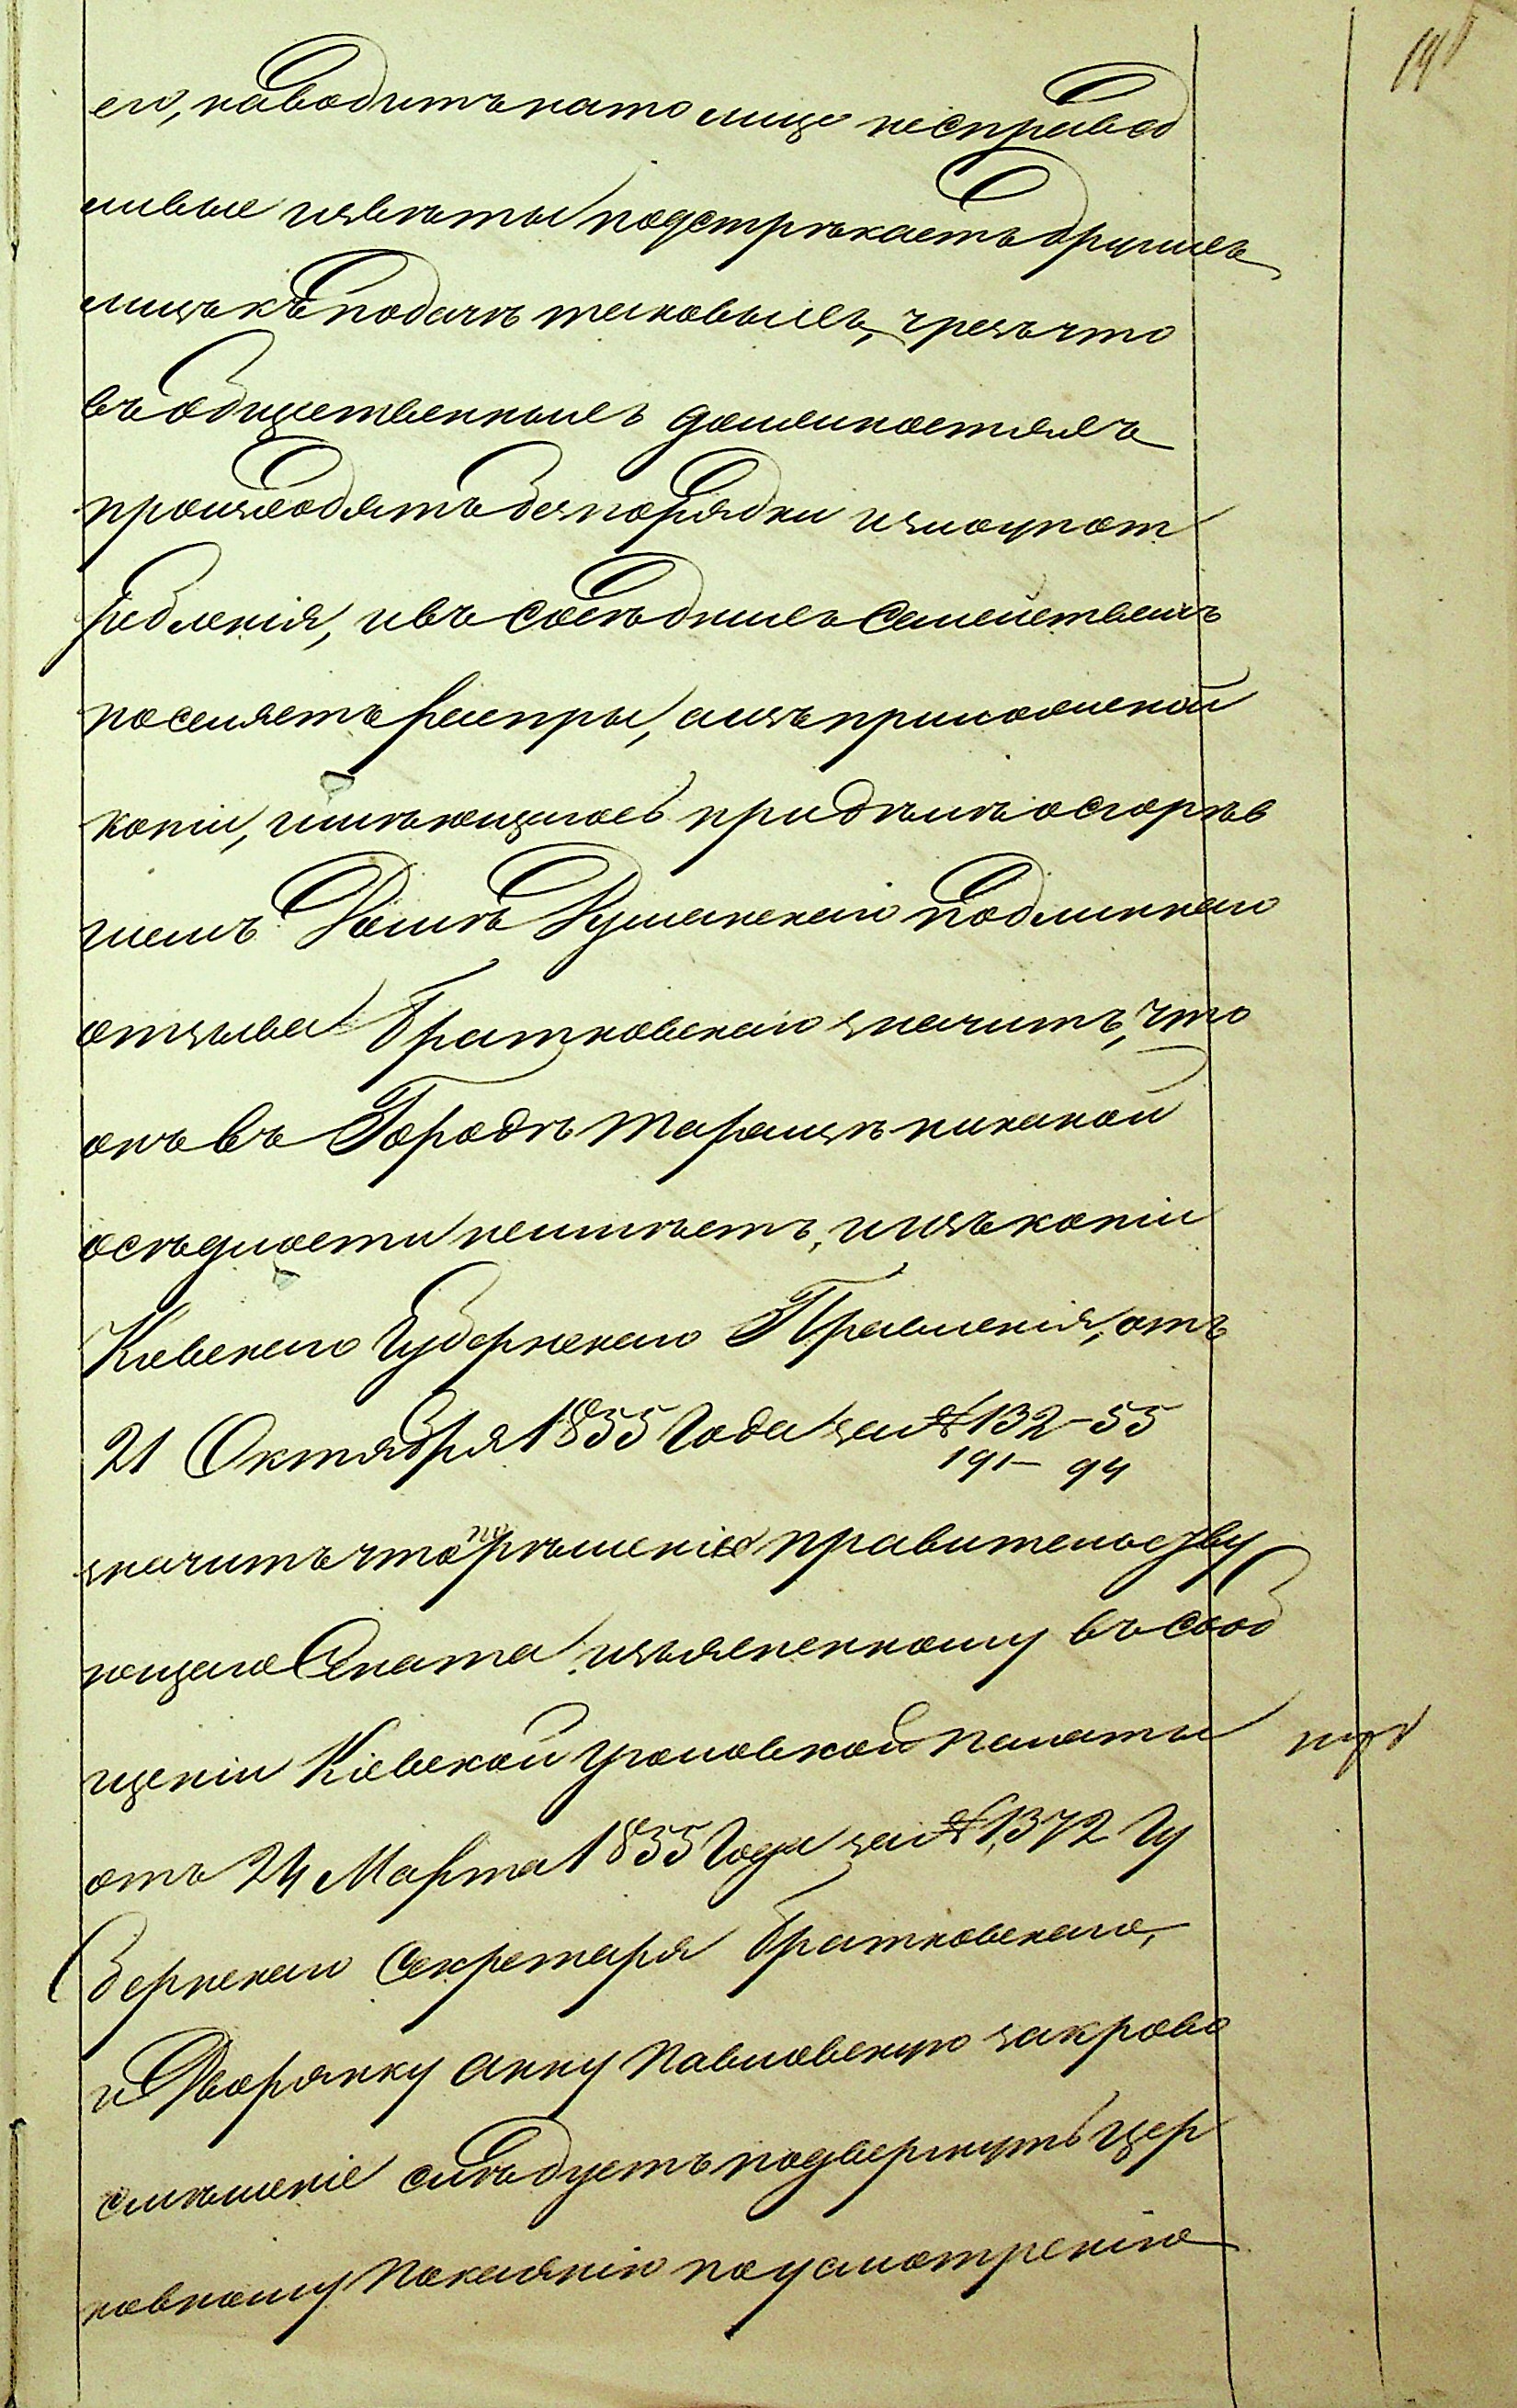 его, наводитъ на то лице несправед
ливые извѣты подстрѣкаетъ другихъ
лицъ къ подачѣ таковыхъ, чрезъ что
въ общественныхъ должностяхъ
произходятъ безпорядки и злоупот
ребленія, и въ сосѣднихъ семействахъ
поселяетъ распры, а изъ приложеной
копіи, имѣющагось при дѣлѣ о сгорѣв
шемъ Домѣ Думанскаго подлиннаго
отзыва Братковскаго значитъ, что
онъ въ Городѣ Таращѣ никакой
осѣдлости неимѣетъ, и изъ копіи
Кіевскаго Губернскаго Правленія, отъ
21 Октября 1855 Года за № 132-55
191- 94
значитъ что по рѣшенію правительству
ющаго Сената изъясненному въ сооб
щеніи Кіевской уголовной палаты
отъ 24 Марта 1855 Года за № 1372 Гу
бернскаго Секретаря Братковскаго,
и Дворянку Анну Павловскую за крово
смѣшеніе слѣдуетъ подвергнуть цер
ковному покаянію по усмотренію